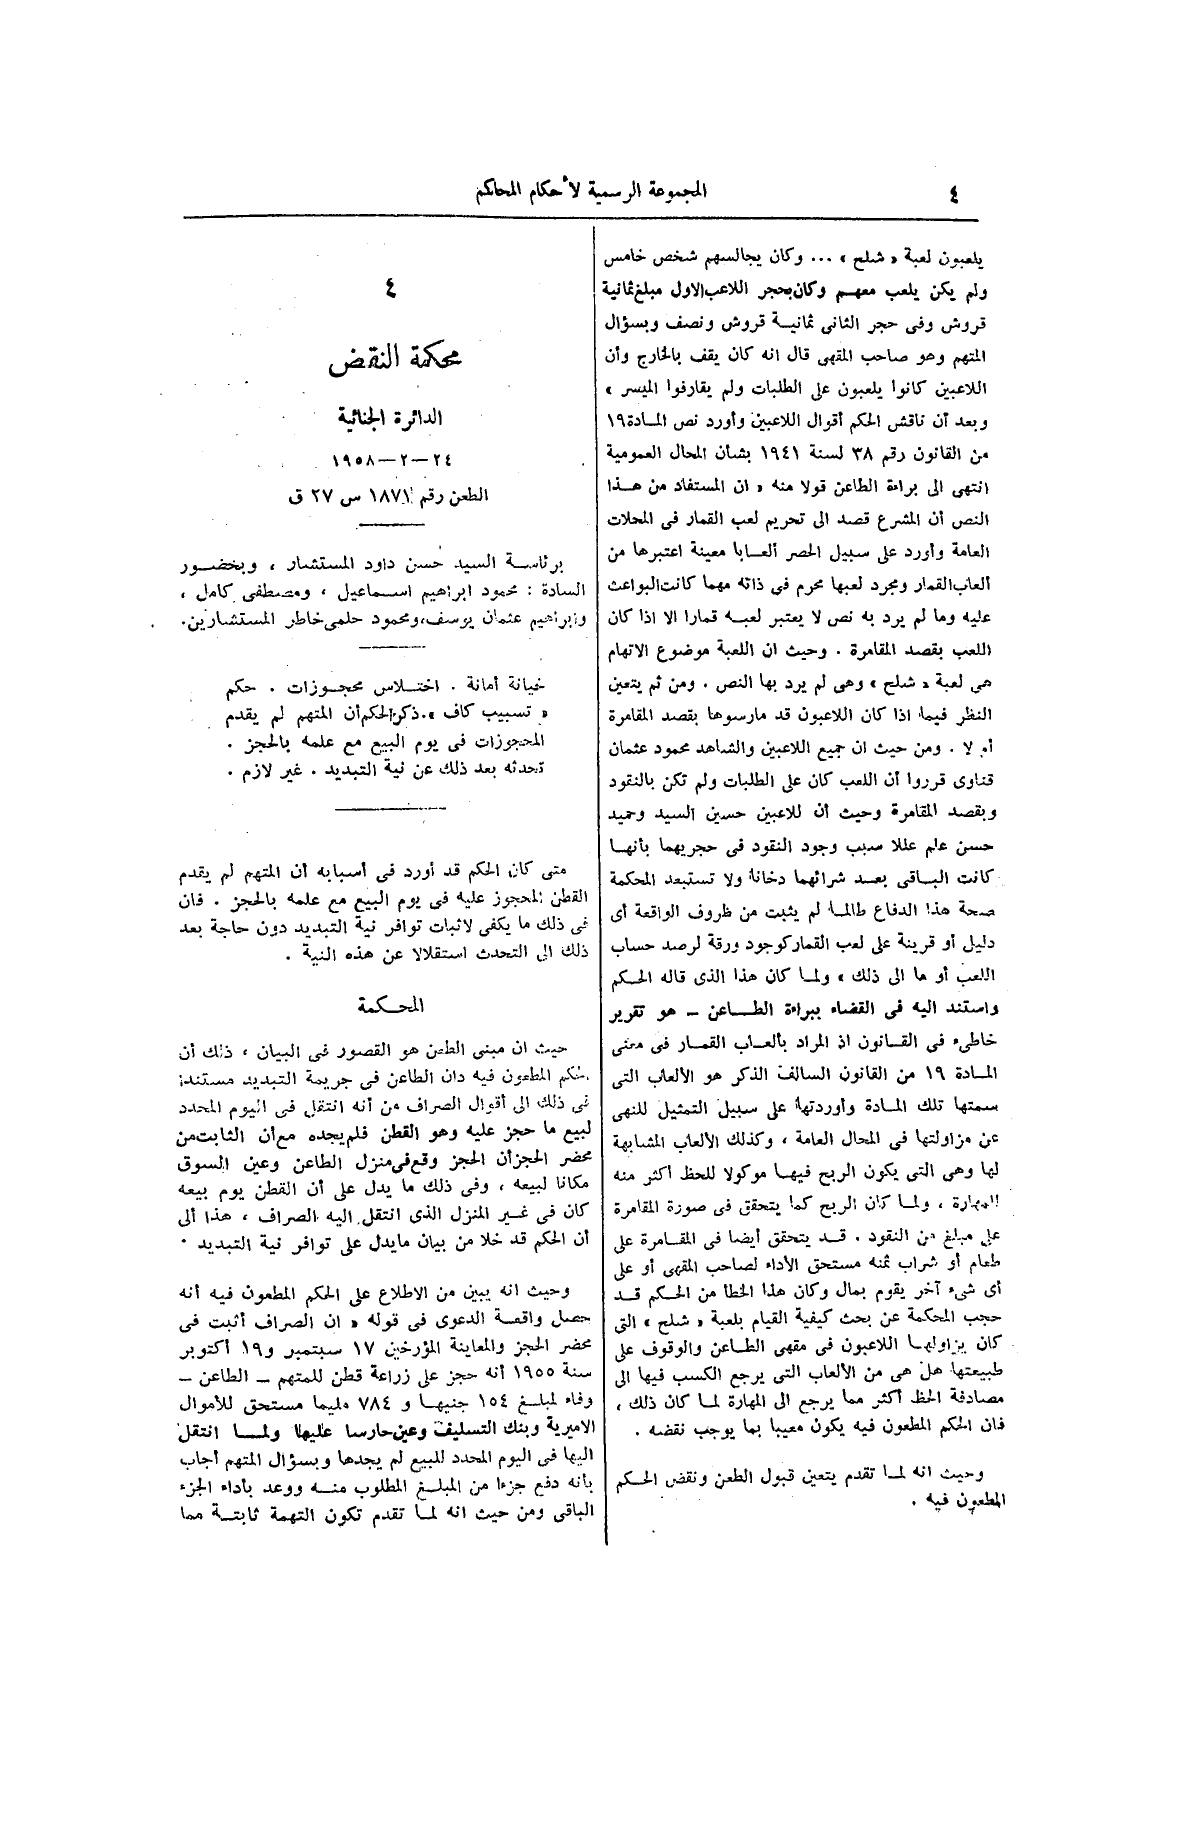 ٤
المجموعة الرسمية لأحكام المحاكم
يلعبون لعبة « شلح » ... وكان يجالسهم شخص خامس
ولم يكن يلعب معهم وكان بحجر اللاعب الاول مبلغ ثمانية
قروش وفى حجر الثانى ثمانية قروش ونصف وبسؤال
المتهم وهو صاحب المقهى قال انه كان يقف بالخارج وأن
اللاعبين كانوا يلعبون على الطلبات ولم يقارفوا الميسر »
وبعد أن ناقش الحكم أقوال اللاعبين وأورد نص المادة ١٩
من القانون رقم ٣٨ لسنة ١٩٤١ بشأن المحال العمومية
انتهى الى براءة الطاعن قولا منه « ان المستفاد من هذا
النص أن المشرع قصد الى تحريم لعب القمار فى المحلات
العامة وأورد على سبيل الحصر ألعابا معينة اعتبرها من
ألعاب القمار ومجرد لعبها محرم فى ذاته مهما كانت البواعث
عليه وما لم يرد به نص لا يعتبر لعبه قمارا الا اذا كان
اللعب بقصد المقامرة . وحيث ان اللعبة موضوع الاتهام
هى لعبة « شلح » وهى لم يرد بها النص . ومن ثم يتعين
النظر فيما اذا كان اللاعبون قد مارسوها بقصد المقامرة
أم لا . ومن حيث ان جميع اللاعبين والشاهد محمود عثمان
قناوى قرروا أن اللعب كان على الطلبات ولم تكن بالنقود
وبقصد المقامرة وحيث أن للاعبين حسين السيد وحميد
حسن علم عللا سبب وجود النقود فى حجريهما بأنها
كانت الباقى بعد شرائهما دخانا ولا تستبعد المحكمة
صحة هذا الدفاع طالما لم يثبت من ظروف الواقعة أى
دليل أو قرينة على لعب القمار كوجود ورقة لرصد حساب
اللعب أو ما الى ذلك » ولما كان هذا الذى قاله الحكم
واستند اليه فى القضاء ببراءة الطاعن – هو تقرير
خاطىء فى القانون اذ المراد بألعاب القمار فى معنى
المادة ١٩ من القانون السالف الذكر هو الألعاب التى
سمتها تلك المادة وأوردتها على سبيل التمثيل للنهى
عن مزاولتها فى المحال العامة ، وكذلك الألعاب المشابهة
لها وهى التى يكون الربح فيها موكولا للحظ أكثر منه
للمهارة ، ولما كان الربح كما يتحقق فى صورة المقامرة
على مبلغ من النقود . قد يتحقق أيضا فى المقامرة على
طعام أو شراب ثمنه مستحق الأداء لصاحب المقهى أو على
أى شىء آخر يقوم بمال وكان هذا الخطأ من الحكم قد
حجب المحكمة عن بحث كيفية القيام بلعبة « شلح » التى
كان يزاولها اللاعبون فى مقهى الطاعن والوقوف على
طبيعتها هل هى من الألعاب التى يرجع الكسب فيها الى
مصادفة الحظ أكثر مما يرجع الى المهارة لما كان ذلك ،
فان الحكم المطعون فيه يكون معيبا بما يوجب نقضه .
وحيث انه لما تقدم يتعين قبول الطعن ونقض الحكم
المطعون فيه .
٤
محكمة النقض
الدائرة الجنائية
٢٤ – ٢ – ١٩٥٨
الطعن رقم ١٨٧١ س ٢٧ ق
برئاسة السيد حسن داود المستشار ، وبحضور
السادة : محمود ابراهيم اسماعيل ، ومصطفى كامل ،
وابراهيم عثمان يوسف، ومحمود حلمى خاطر المستشارين.
خيانة أمانة . اختلاس محجوزات . حكم
« تسبيب كاف » . ذكر الحكم أن المتهم لم يقدم
المحجوزات فى يوم البيع مع علمه بالحجز .
تحدثه بعد ذلك عن نية التبديد . غير لازم .
متى كان الحكم قد أورد فى أسبابه أن المتهم لم يقدم
القطن المحجوز عليه فى يوم البيع مع علمه بالحجز . فان
فى ذلك ما يكفى لاثبات توافر نية التبديد دون حاجة بعد
ذلك الى التحدث استقلالا عن هذه النية .
المحكمة
حيث ان مبنى الطعن هو القصور فى البيان ، ذلك أن
الحكم المطعون فيه دان الطاعن فى جريمة التبديد مستندا
فى ذلك الى أقوال الصراف من أنه انتقل فى اليوم المحدد
لبيع ما حجز عليه وهو القطن فلم يجده مع أن الثابت من
محضر الحجز أن الحجز وقع فى منزل الطاعن وعين السوق
مكانا لبيعه ، وفى ذلك ما يدل على أن القطن يوم بيعه
كان فى غير المنزل الذى انتقل اليه الصراف ، هذا الى
أن الحكم قد خلا من بيان مايدل على توافر نية التبديد .
وحيث انه يبين من الاطلاع على الحكم المطعون فيه أنه
حصل واقعة الدعوى فى قوله « ان الصراف أثبت فى
محضر الحجز والمعاينة المؤرخين ١٧ سبتمبر و ١٩ أكتوبر
سنة ١٩٥٥ أنه حجز على زراعة قطن للمتهم – الطاعن –
وفاء لمبلغ ١٥٤ جنيها و ٧٨٤ مليما مستحق للأموال
الاميرية وبنك التسليف وعين حارسا عليها ولما انتقل
اليها فى اليوم المحدد للبيع لم يجدها وبسؤال المتهم أجاب
بأنه دفع جزءا من المبلغ المطلوب منه ووعد بأداء الجزء
الباقى ومن حيث انه لما تقدم تكون التهمة ثابتة مما